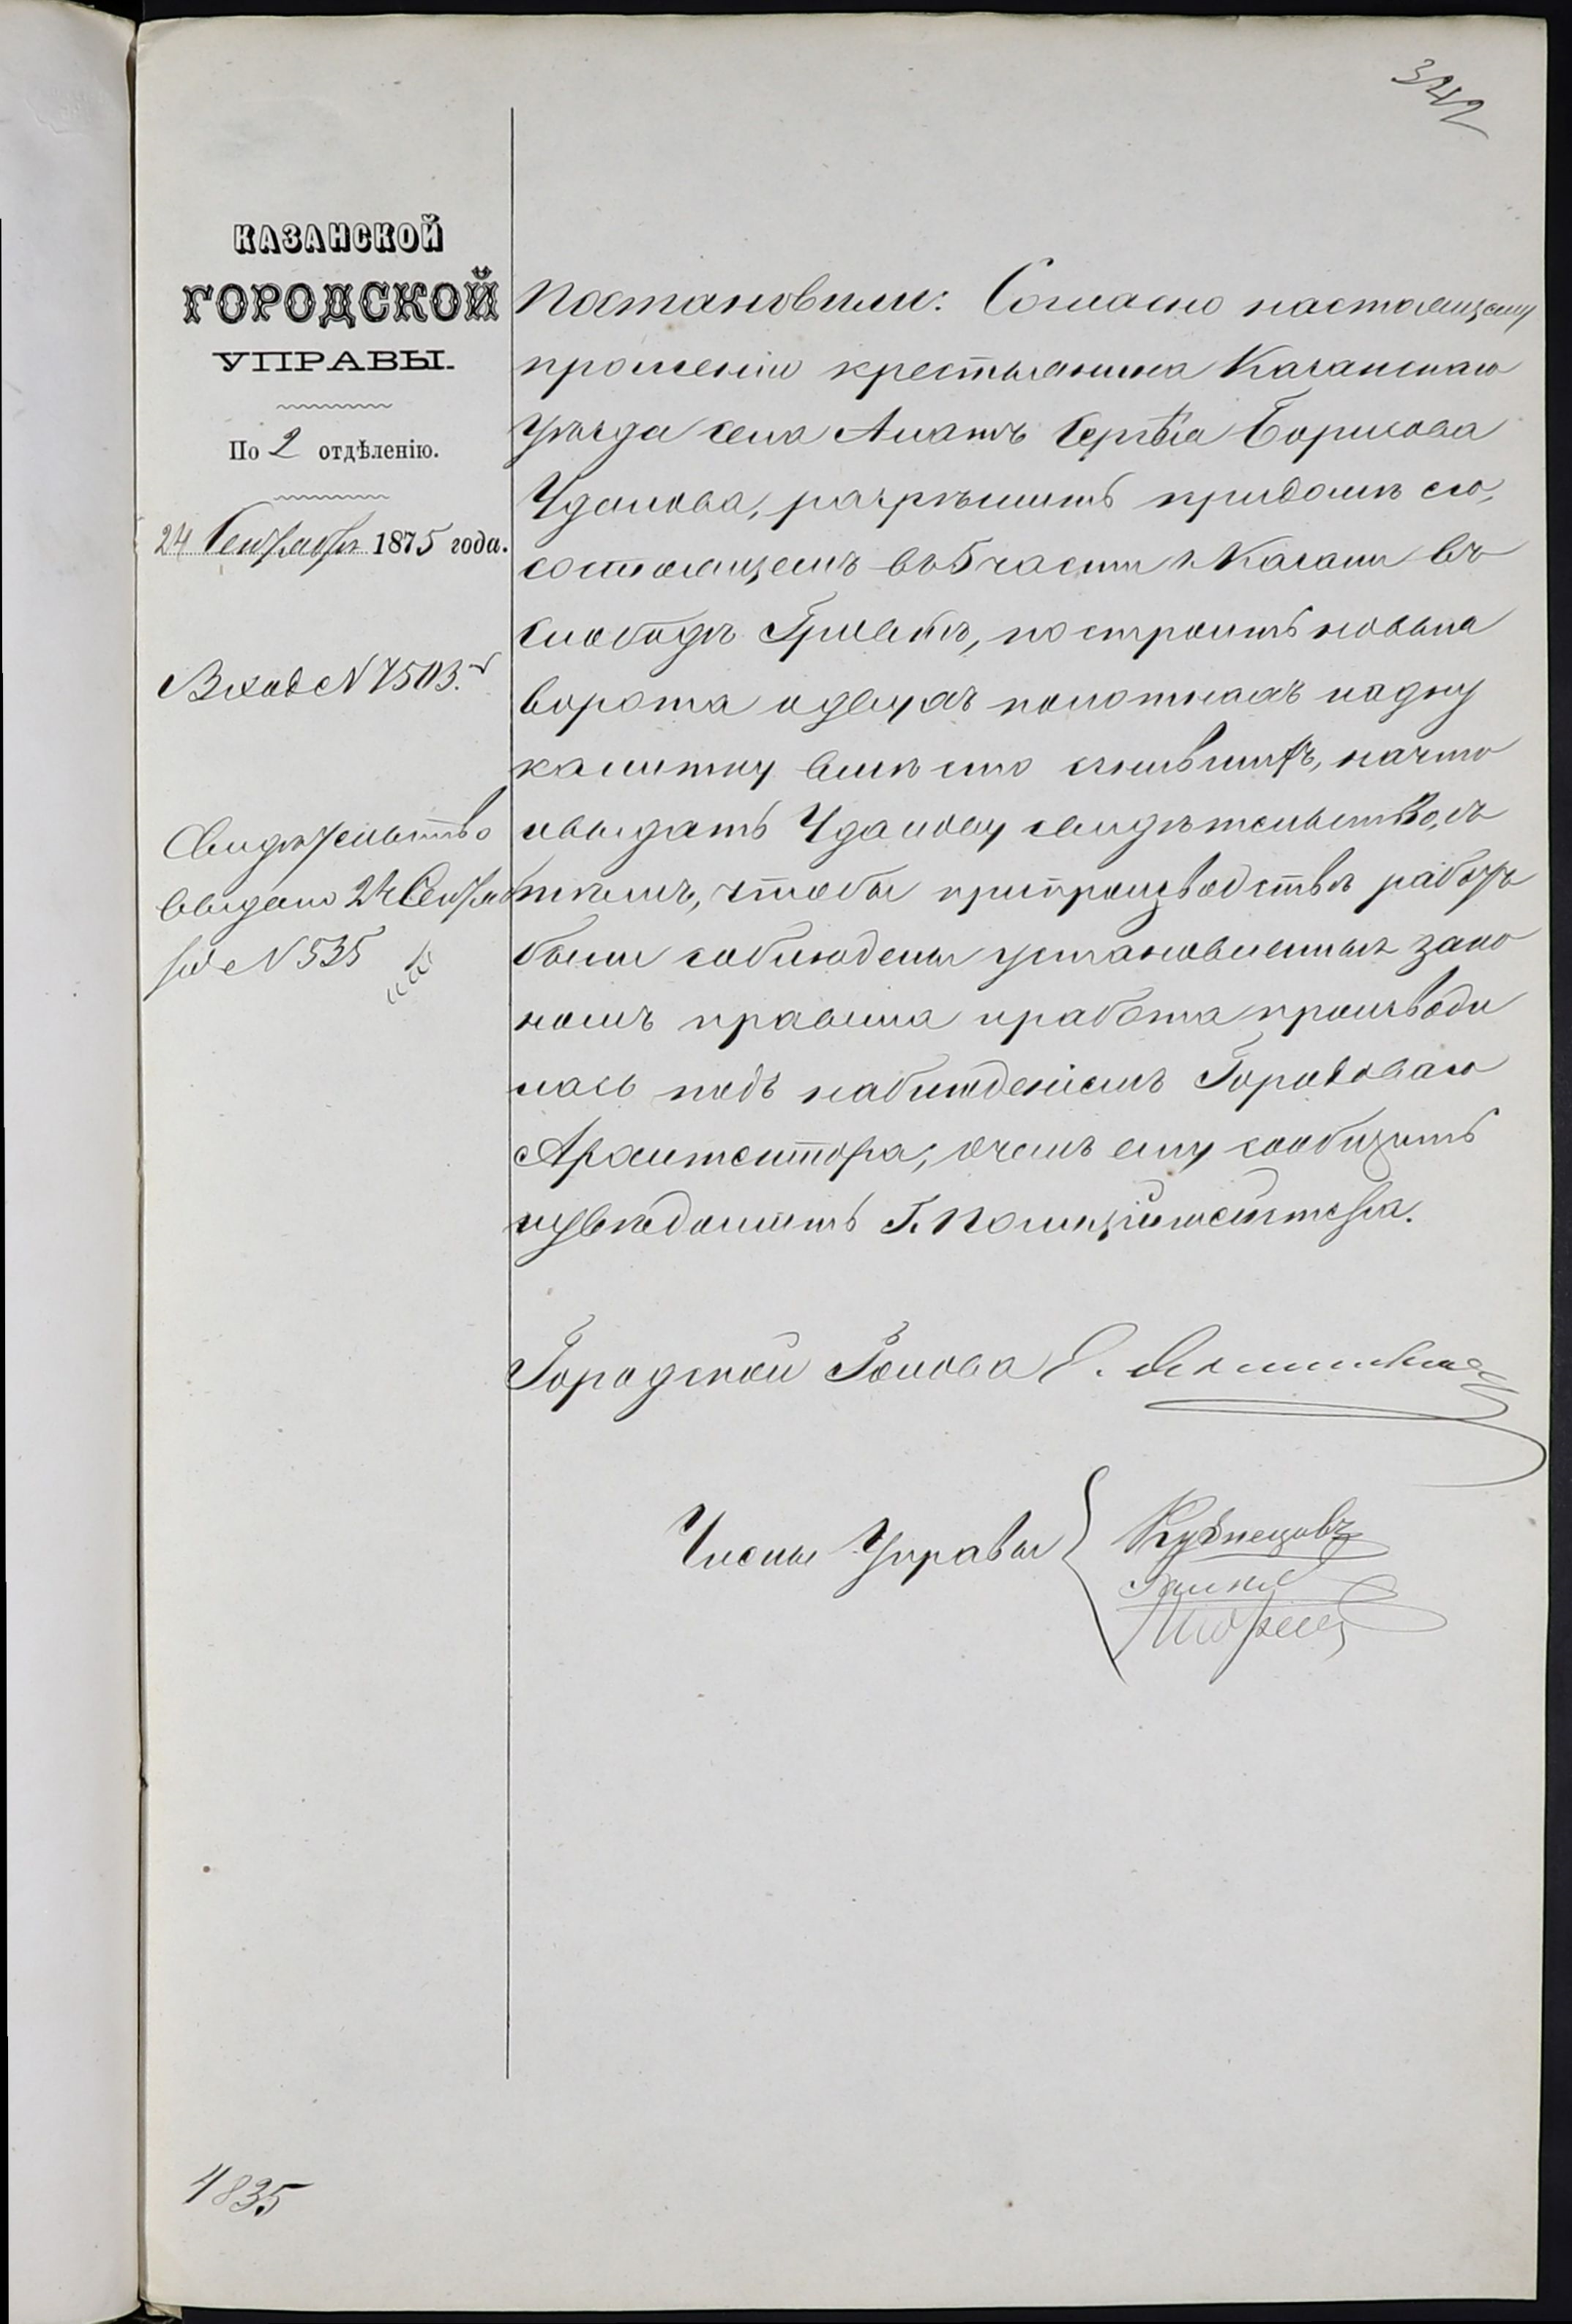 342
КАЗАНСКОЙ
ГОРОДСКОЙ
УПРАВЫ.
По 2 отдѣленію.
24 Сентября 1875 года.
Вход № 7503.
Свидѣтельство
выдано 24 Сентяб
ря № 535
Постановили: Согласно настоящему
прошенію крестьянина Казанскаго
уѣзда села Алатъ Сергѣя Борисова
Удалова, разрѣшить при домѣ его,
состоящемъ въ 5 части г. Казани въ
слободѣ Гривкѣ, построить новыя
ворота о двухъ полотнахъ и одну
калитку вмѣсто сгнившихъ, на что
и выдать Удалову свидѣтельство, съ
тѣмъ, чтобы при производствѣ работъ
были соблюдены установленныя зако
номъ правила и работа производи
лась подъ наблюденіемъ Городоваго
Архитектора, о чемъ ему сообщить
и увѣдомить Г. Полиціймейстера.
Городской Голова Е.
Члены Управы
Кузнецовъ
4835